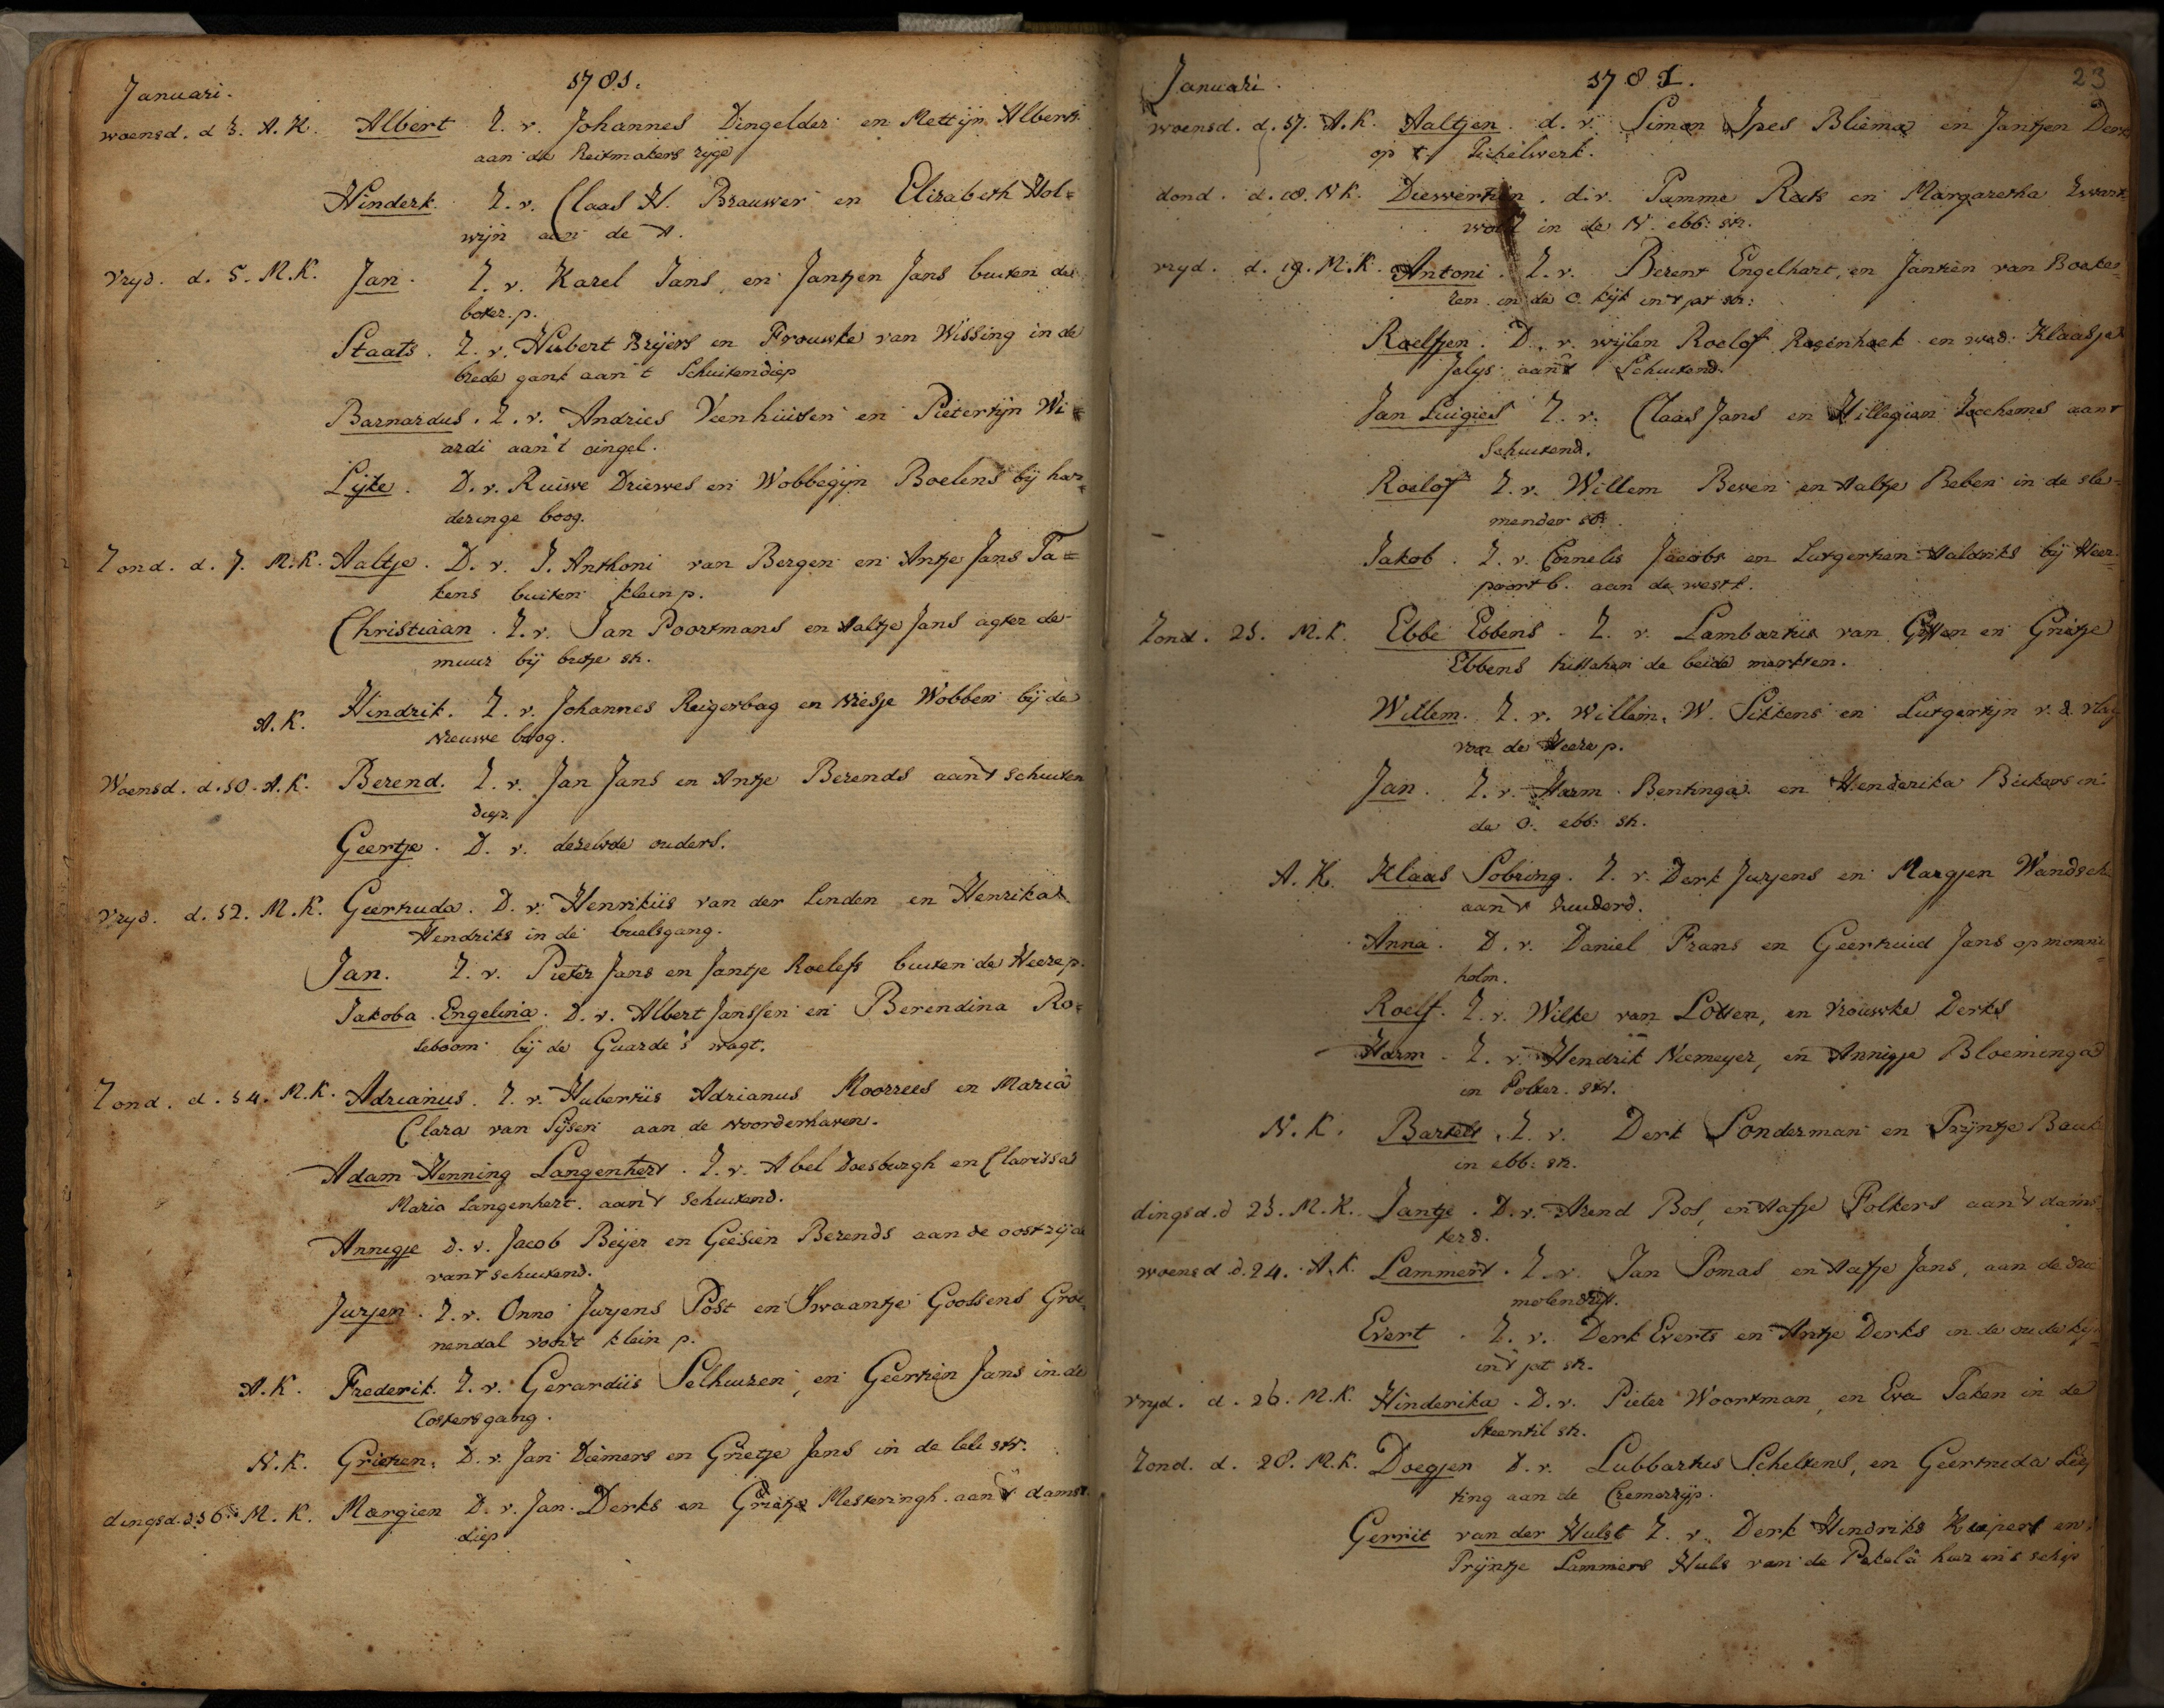 Januari. 1781.
woensd. d 3. A. K. Albert Z. v. Johannes Dingelder en Mettijn Alberts
aan de Reitmakers ryge
Hinderk. Z. v. Claas H. Brauwer en Elizabeth Hol=
wijn aan de A.
Vryd. d. 5. M. K. Jan. Z. v. Karel Jans en Jantjen Jans buiten de
boter. p.
Staats. Z. v. Hubert Brijers en Frouwke van Wissing in de
brede gank aan 't Schuitendiep
Barnardus. Z. v. Andries Veenhuisen en Pietertijn Wi=
ardi aan 't cingel.
Lijke. D. v. Ruiwe Driewes en Wobbegijn Boelens bij har=
deringe boog.
Zond. d. 7. M. K. Aaltje. D. v. J. Anthoni van Bergen en Antje Jans Ta=
kens buiten klein p.
Christiaan. Z. v. Jan Poortmans en Aaltje Jans agter de
muur bij butje str.
A. K. Hindrik. Z. v. Johannes Reigerbag en Wiesje Wobben bij de
Nieuwe boog.
Woensd. d. 10. A. K. Berend. Z. v. Jan Jans en Antje Berends aan 't schuiten
diep.
Geertje. D. v. dezelvde ouders.
Vryd. d. 12. M. K. Geertruda. D. v. Henrikus van der Linden en Henrika
Hendriks in de buelsgang.
Jan. Z. v. Pieter Jans en Jantje Roelefs buiten de Heere p.
Jakoba Engelina. D. v. Albert Janssen en Berendina Ro=
seboom bij de Guarde's wagt.
Zond. d. 14. M. K. Adrianus. Z. v. Hubertus Adrianus Moorrees en Maria
Clara van Sijsen aan de Noorderhaven.
Adam Henning Langenhert. Z. v. Abel Doesburgh en Clarissa
Maria Langenhert. aan 't schuitend.
Annigje D. v. Jacob Beijer en Geesien Berends aan de oostzijde
van 't schuitend.
Jurjen. Z. v. Onno Jurjens Post en Swaantje Goossens Groe=
nendal voor 't klein p.
A. K. Frederik. Z. v. Gerardus Selhuizen, en Geertien Jans in de
Costersgang.
N. K. Grieten. D. v. Jan Diemers en Grietje Jans in de leli str.
dingsd. d 16. M. K. Margien D. v. Jan Derks en Grietje Mesteringh aan 't damst.
diep
Januari. 1781. 23
woensd. d. 17. A. K. Aaltjen. d. v. Simon Ipes Bliema en Jantjen Derks
op 't Pichelwerk.
dond. d. 18. N K. Diewertien. d. v. Tamme Reits en Margaretha Zwart
wold in de N. ebb: str.
vryd. d. 19. M. K. Antoni. Z. v. Berent Engelhart, en Jantien van Boeke=
ren in de O. kijk in 't jat str:
Roelfjen. D. v. wijlen Roelof Rozenhoek en wed. Klaasje
Jelys aan 't Schuitend.
Jan Luigies Z. v. Claas Jans en Hillegien Jochems aan 't
Schuitend.
Roelof Z. v. Willem Beven en Aaltje Beben in de sle=
mender str.
Jakob. Z. v. Cornelis Jacobs en Lutgertien Haldriks bij Heer=
poort b. aan de westk.
Zond. 21. M. K. Ebbe Ebbens. Z. v. Lambartus van Gitten en Grietje
Ebbens tusschen de beide markten.
Willem. Z. v. Willem. W. Sikkens en Lutgertijn v. d. Vlag
van de Heere p.
Jan. Z. v. Harm Bentinga en Henderika Bickers in
de O. ebb: str.
A. K. Klaas Sobring. Z. v. Derk Jurjens en Margjen Wandsch
aan 't zuuderd.
Anna. D. v. Daniel Frans en Geertruid Jans op monni=
holm.
Roelf. Z. v. Wilke van Lotten, en Vrouwke Derks
Harm. Z. v. Hendrik Niemeyer, en Annigje Bloeminga
in Folker. str.
N. K. Bartelt. Z. v. Derk Sonderman en Trijntje Bauk
in ebb: str.
dingsd. d 23. M. K. Jantje. D. v. Arend Bos, en Aafje Folkers aan 't dams
terd.
woensd d. 24. A. K. Lammert. Z. v. Jan Tomas en Aafje Jans, aan de Drie
molendrift.
Evert. Z. v. Derk Everts en Antje Derks in de oude kijk
in 't jat str.
Vryd. d. 26. M. K. Hinderika. D. v. Pieter Woortman, en Eva Taken in de
Steentil str.
Zond. d. 28. M. K. Doegjen D. v. Lubbartus Scheltens, en Geertruda
ting aan de Cremerrijp.
Gerrit van der Hulst Z. v. Derk Hindriks Kuipert en
Trijntje Lammers Huls van de Pekela hier in 's schip